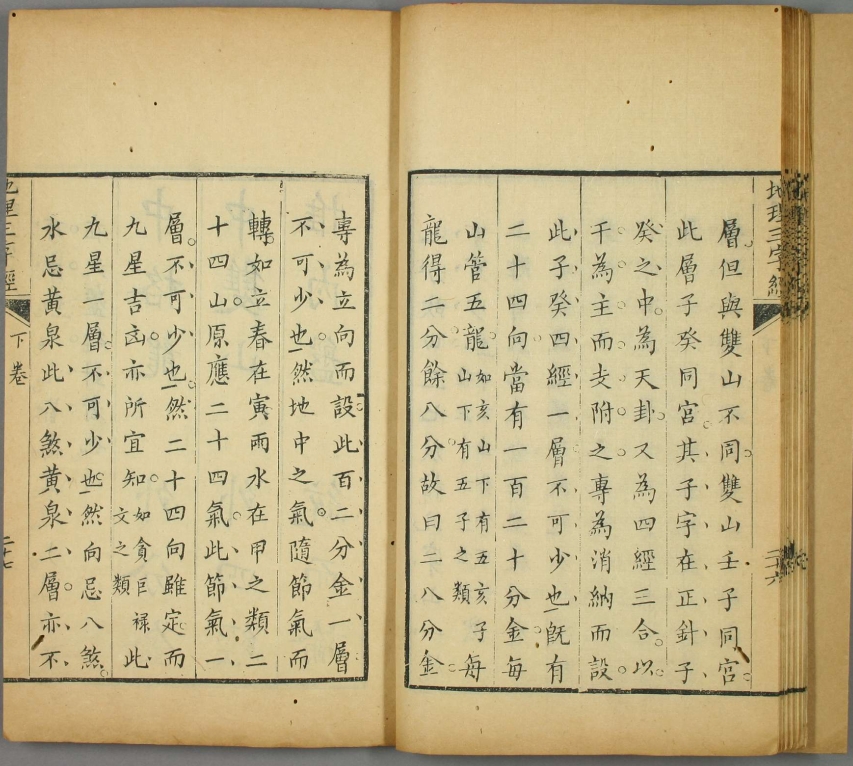 地理三字經
二十六
層但與雙山不同雙山壬子同宮
此層子癸同宮其子字在正針子
癸之中為天卦又為四經三合以
干為主而支附之專為消納而設
此子癸四經一層不可少也旣有
二十四向當有一百二十分金每
山管五龍如亥山下有五亥子山下有五子之類每
龍得二分餘八分故曰二八分金
專為立向而設此百二分金一層
不可少也然地中之氣隨節氣而
轉如立春在寅雨水在甲之類二
十四山原應二十四氣此節氣一
層不可少也然二十四向雖定而
九星吉凶亦所宜知如貪巨祿文之類此
九星一層不可少也然向忌八煞
水忌黃泉此八煞黃泉二層亦不
地理三字經
下卷
二十七